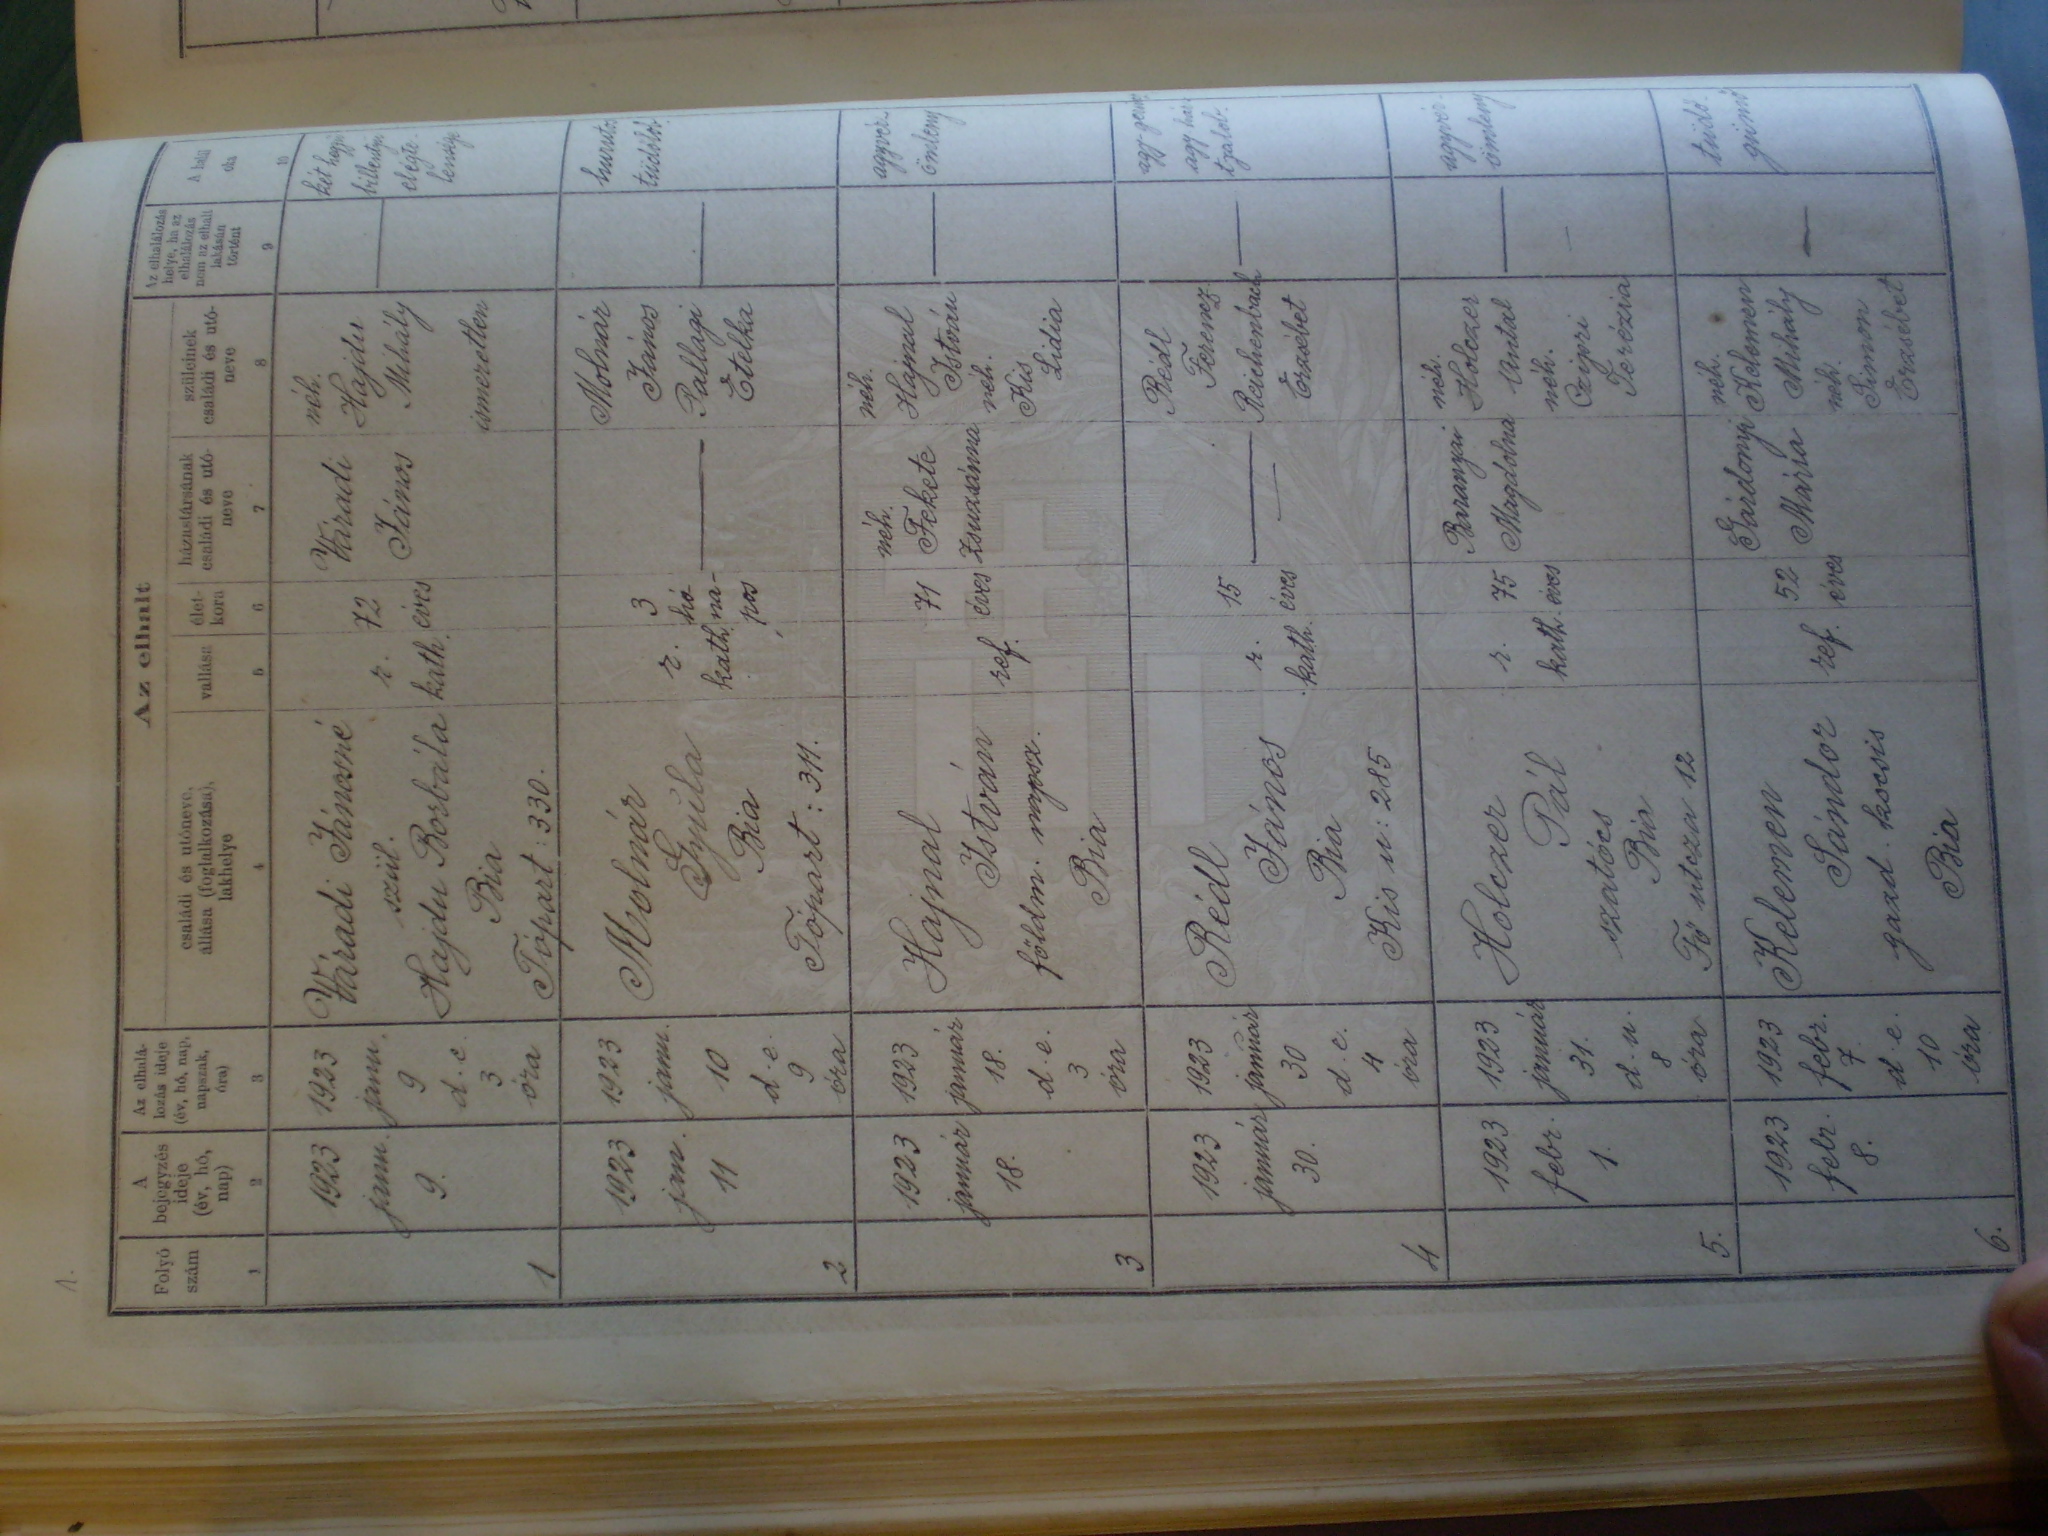 1.
Az elhalt
Folyó
szám
1
A
bejegyzés
ideje
(év, hó,
nap)
2
Az elhalá-
lozás ideje
(év, hó, nap,
napszak,
óra)
3
családi és utóneve,
állása (foglalkozása),
lakhelye
4
vallása
5
élet-
kora
6
házastársának
családi és utó-
neve
7
szüleinek
családi és utó-
neve
8
Az elhalálozás
helye, ha az
elhalálozás
nem az elhalt
lakásán
történt
9
A halál
oka
10
1
1923
janu.
9.
1923
janu.
9
d. e.
3
óra
Váradi Jánosné
szül.
Hajdu Borbála
Bia
Tópart: 330.
r.
kath.
72
éves
Váradi
János
néh.
Hajdu
Mihály
ismeretlen
két hegyü
billentyü
elégte-
lensége
2
1923
jan.
11
1923
janu.
10
d. e.
9
óra
Molnár
Gyula
Bia
Tópart: 311.
r.
kath.
3
hó-
na-
pos
Molnár
János
Pallagi
Etelka
hurutos
tüdőlob
3
1923
január
18.
1923
január
18.
d. e.
3
óra
Hajnal
István
földm. napsz.
Bia
ref.
71
éves
néh.
Fekete
Zsuzsánna
néh.
Hajnal
István
néh.
Kis
Lidia
agyvér-
ömleny
4
1923
január
30.
1923
január
30
d. e.
4
óra
Rédl
János
Bia
Kis u: 285
r.
kath.
15
éves
Rédl
Ferencz
Reichenbach
Erzsébet
agy
5.
1923
febr.
1.
1923
január
31.
d. u.
8
óra
Holczer
Pál
szatócs
Bia
Fő utcza 12
r.
kath.
75
éves
Baranyai
Magdolna
néh.
Holczer
Antal
néh.
Czipri
Terézia
agyvér-
ömleny
6.
1923
febr.
8.
1923
febr.
7
d. e.
10
óra
Kelemen
Sándor
gazd. kocsis
Bia
ref.
52
éves
Gárdonyi
Mária
néh.
Kelemen
Mihály
néh.
Simon
Erzsébet
tüdő-
gümő